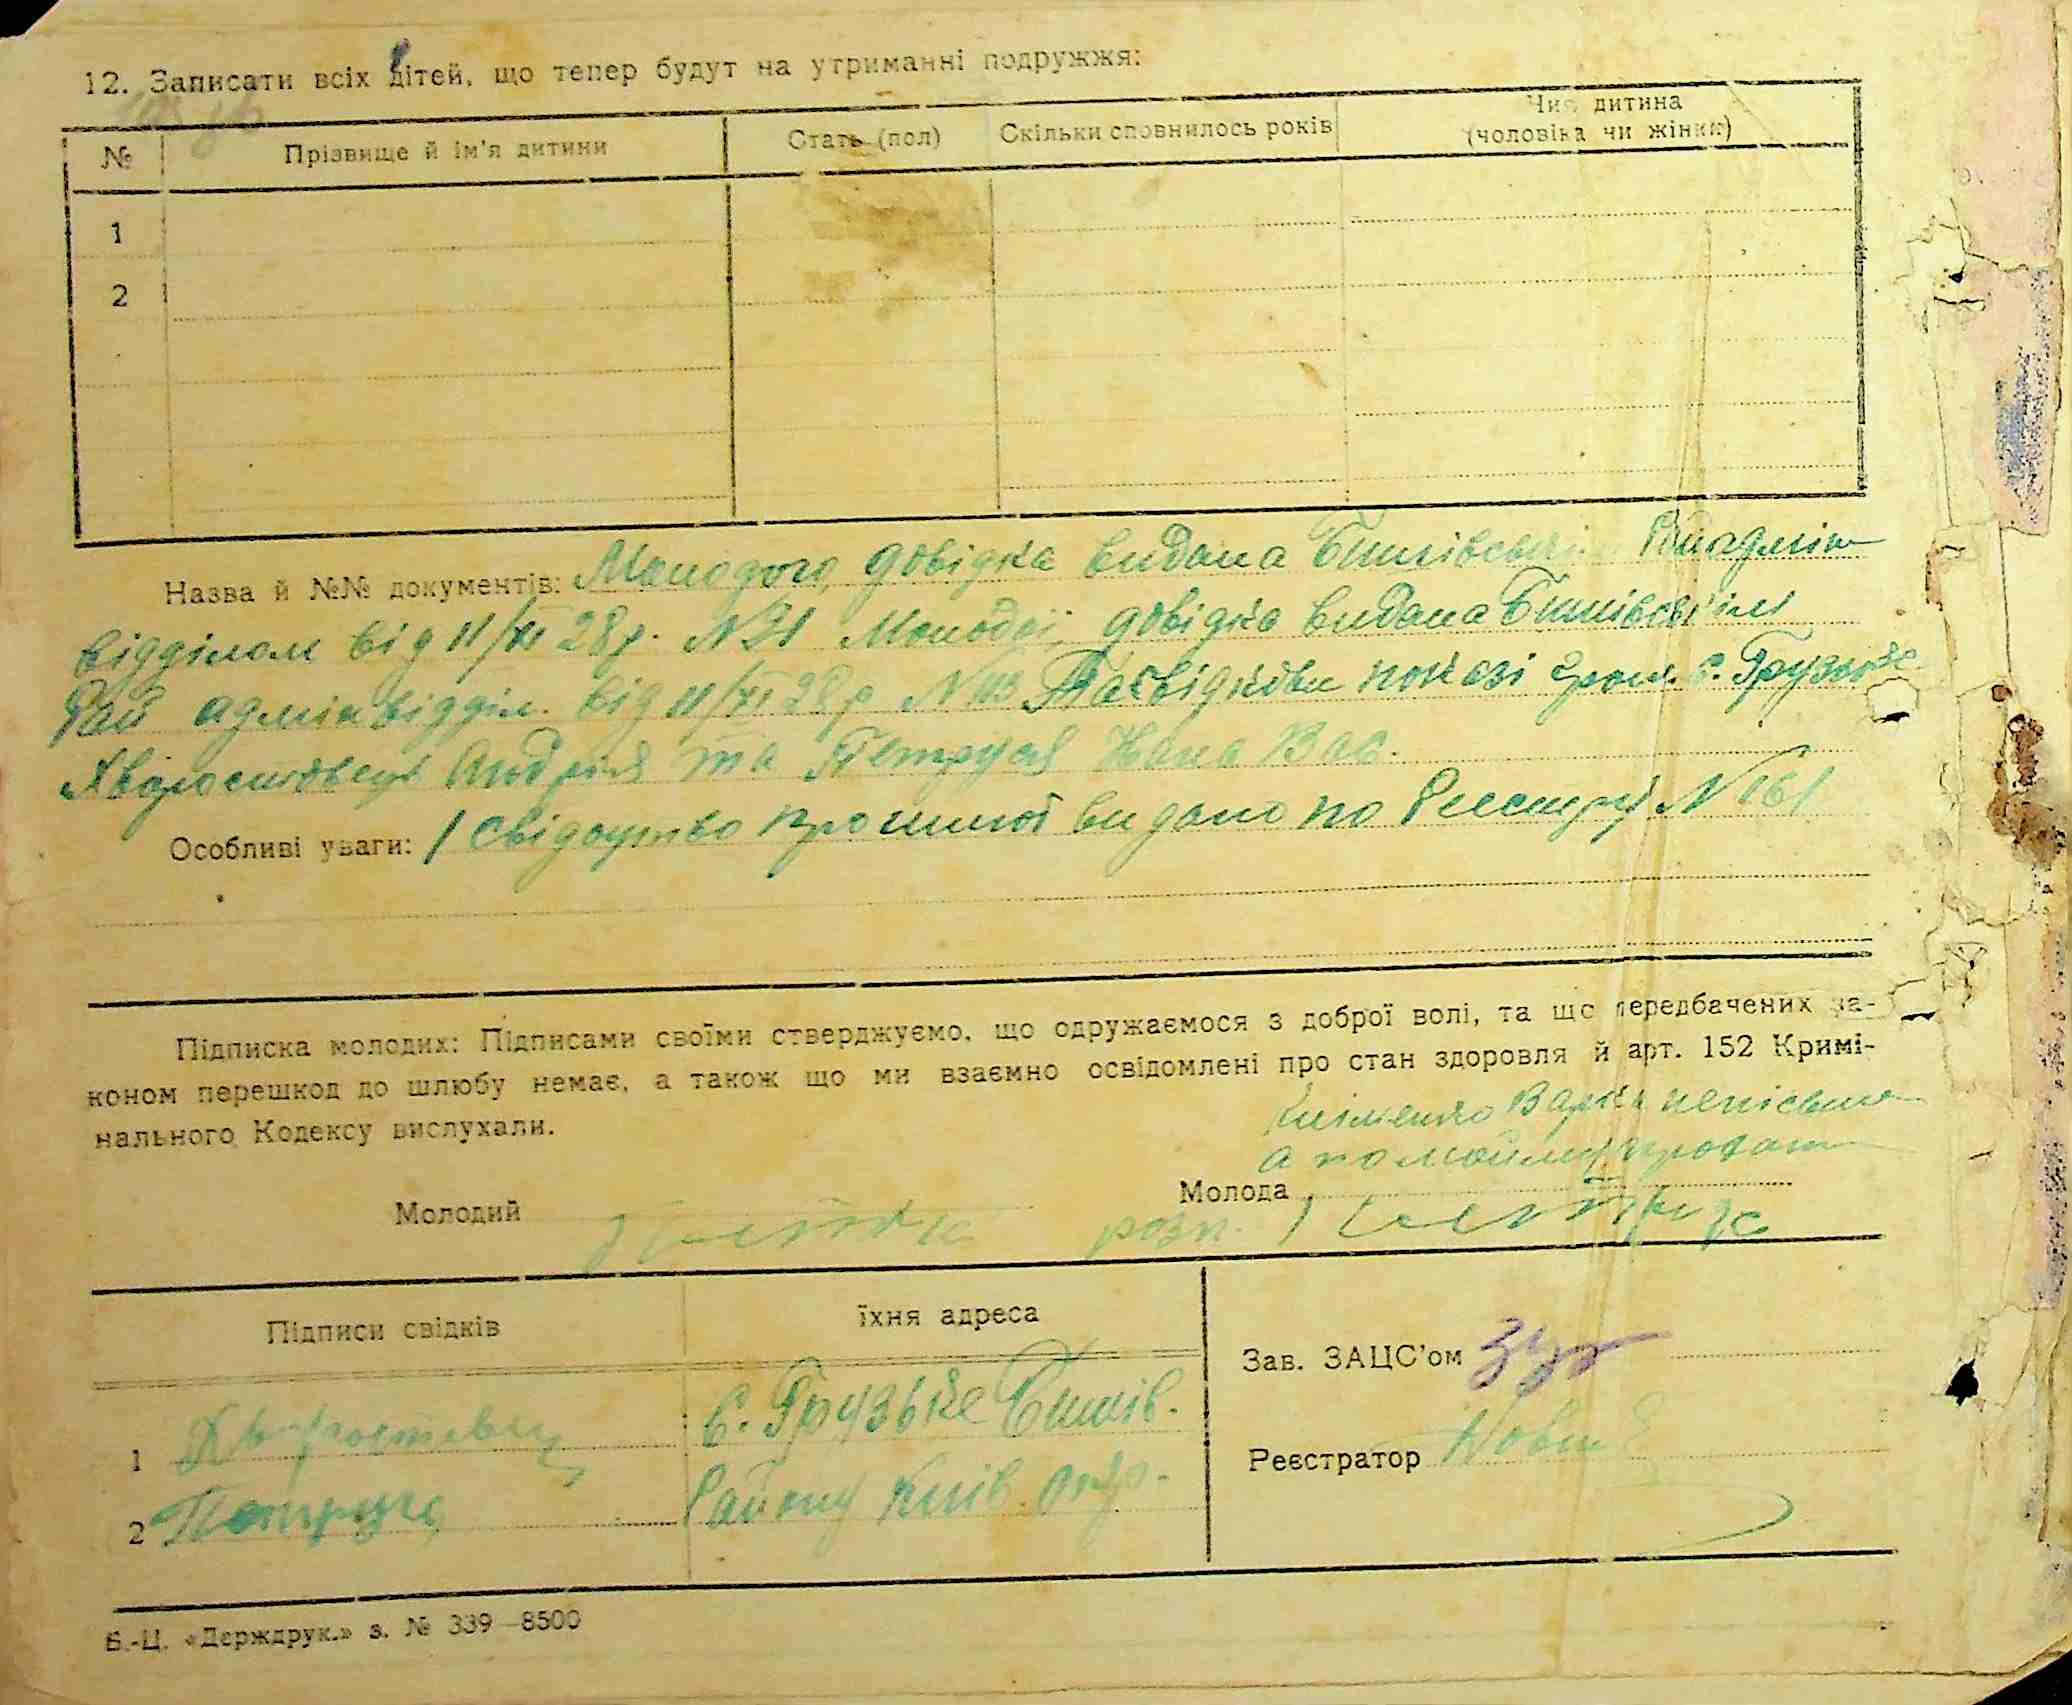 12. Записати всіх дітей, що тепер будут на утриманні подружжя:
№ Прізвище й ім'я дитини Стать (пол) Скільки сповнилось років Чия дитина (чоловіка чи жінки)
1
2
Назва й №№ документів: Молодого, довідка видана Бишівським Райадмін
відділом від 11/XI 28 р. N 31 Молодої, довідка видана Бишівським
Рай адмінвідділ. від 11/XI 28 р N 43 Та свідків показі гром. с. Грузьке
Хворостовець Андрія та Петруся Вас.
Особливі уваги: 1 свідоцтво видано по Реєстру N 161
Підписка молодих: Підписами своїми стверджуємо, що одружаємося з доброї волі, та що передбачених за-
коном перешкод до шлюбу немає, а також що ми взаємно освідомлені про стан здоровля й арт. 152 Кримі-
нального Кодексу вислухали.
Кліменко Варка неписьмен
а по
Молодий Молода
розп.
Підписи свідків їхня адреса
Зав. ЗАЦС'ом
1 Хворостовец с. Грузьке Бишів.
Реєстратор
2 Петруся Району Київ. окр.
Б.-Ц. «Держдрук.» з. № 339—8500